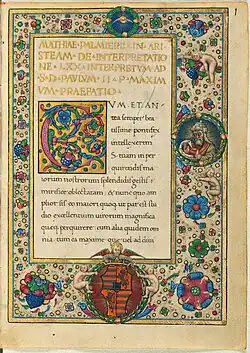 1
MATHIAE · PALMIERII · IN · ARI
STEAM · DE · INTERPRETATIO
NE · LXX · INTERPRETVM · AD
S · D · PAVLVM · II · P · MAXIM
VM · PRAEFATIO ·
CVM · ET · AN
tea semper bea
tissime pontifex
intellexerim
S. tuam in per
quirendis ma
iorum nostrorum splendidis gestis
mirifice oblectatam: & nunc quo am
plior
est eo maiori quoque ut par est stu
dio excellentium uirorum magnifica
quaeque perquirere: cum alia quidem om
nia tum ea maxime que uel ad